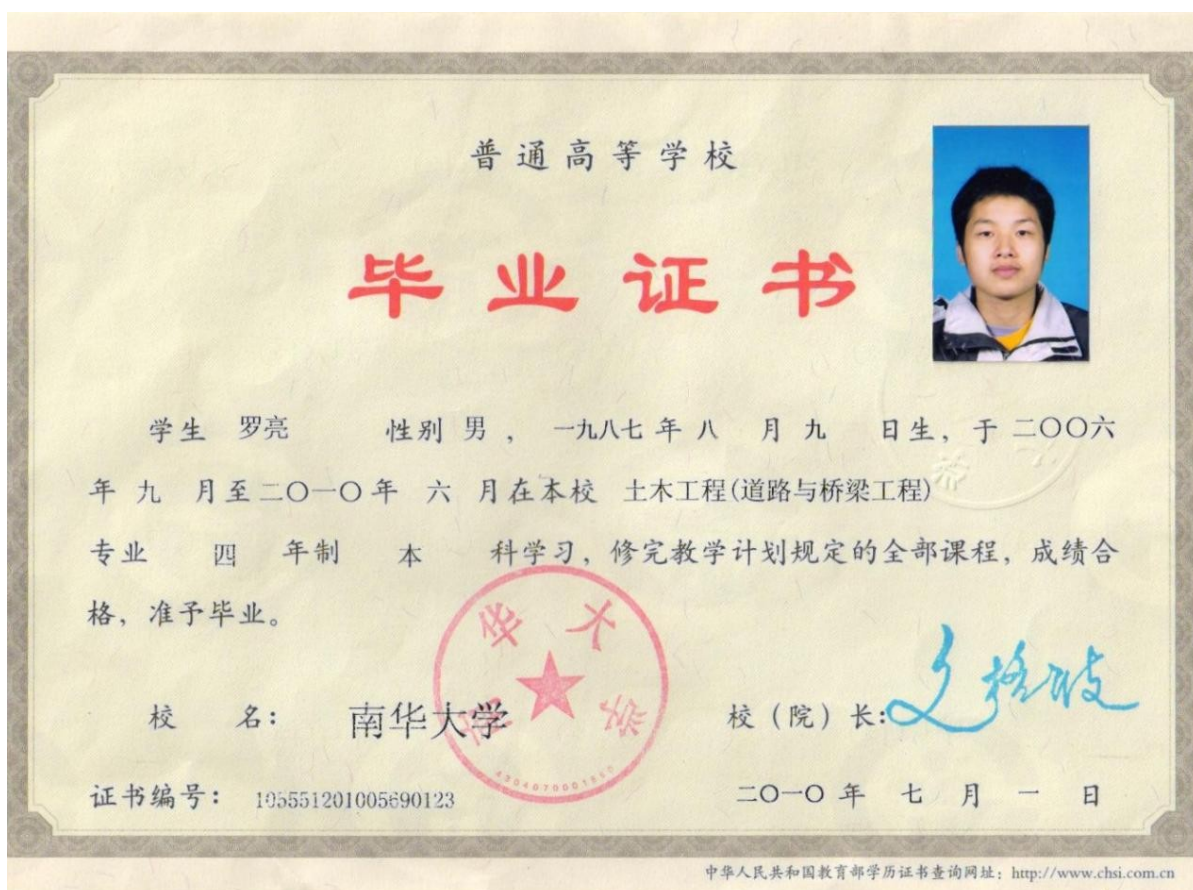 普通高等学校
毕业证书
学生 罗亮 性别 男 ， 一九八七 年 八 月 九 日生，于 二〇〇六
年 九 月至 二〇一〇 年 六 月在本校 土木工程(道路与桥梁工程)
专业 四 年制 本 科学习，修完教学计划规定的全部课程，成绩合
格，准予毕业。
南华大学
校 名： 南华大学 校（院）长：
证书编号： 105551201005690123 二〇一〇 年 七 月 一 日
中华人民共和国教育部学历证书查询网址：http://www.chsi.com.cn